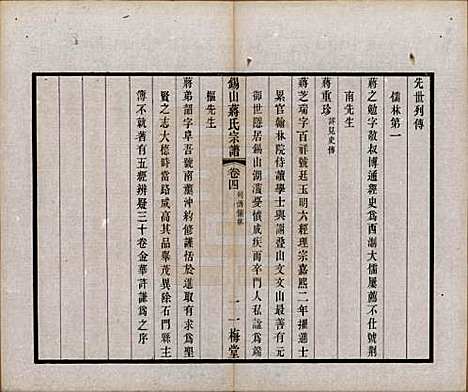 先世列傳
儒林第一
蔣之勉字敖叔博通經史為西湖大儒屢薦不仕號荆
南先生
蔣重珍詳見史傳
蔣芝瑞字百祥號廷玉明六經理宗嘉熙二年擢進士
累官翰林院侍讀學士與謝疊山文文山最善有元
御世隱居錫山湖濱憂憤成疾而卒門人私諡為端
樞先生
蔣弟韶字阜吾號南薰沖約修謹恬於進取有求為聖
賢之志大德時當路咸高其品舉茂異除石門縣主
簿不就著有五經辨疑三十卷金華許謙為之序
錫山蔣氏宗譜
卷四
列傳儒林
一
一梅堂